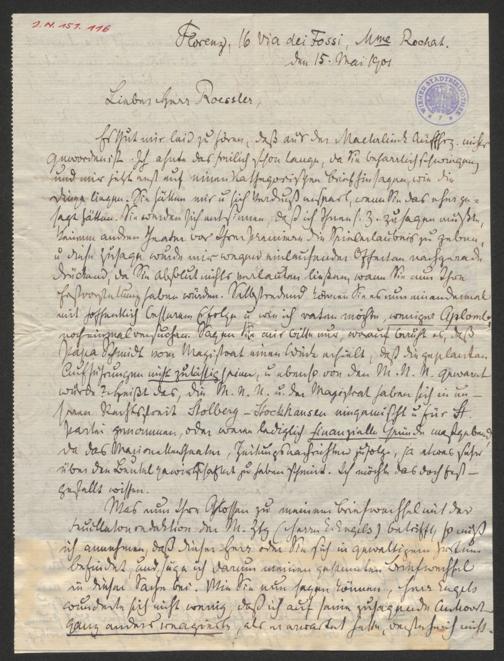 J.N. 151.116
Florenz, 16 Via dei Fossi, Mme Rochat.
den 15. Mai 1901
WIENER STADTBIBLIOTHEK
Lieber Herr Roessler,
Es tut mir leid zu hören, daß aus der Maeterlinck Auffhrg. nichts
geworden ist. Ich ahnte das freilich schon lange, da Sie beharrlich schwiegen
und mir jetzt erst auf einen kathegorischen Brief hin sagen, wie die
Dinge liegen. Sie hätten mir u sich Verdruß erspart, wenn Sie das eher ge-
sagt hätten. Sie werden sich entsinnen, daß ich Ihnen s. Z. zusagen mußte,
keinem andern Theater vor Ihrer Premiere die Spielerlaubnis zu geben,
u diese Zusage wurde mir wegen einlaufender Offerten nachgerade
drückend, da Sie absolut nichts verlauten ließen, wann Sie nun Ihre
Erstvorstellung haben würden. Selbstredend können Sie es nun ein andermal
mit hoffentlich besserem Erfolge u wie ich raten möchte, weniger Aplomb
noch einmal versuchen. Sagen Sie mir bitte nur, worauf beruht es, daß
Papa Schmidt vom Magistrat einen Wink erhielt, daß die geplanten
Aufführungen nicht zulässig seien, u ebenso von den M. N. N. gewarnt
wurde? Heißt das, die M. N. N. u der Magistrat haben sich in un-
seren Rechtsstreit Stolberg - Stockhausen eingemischt u für St
Partei genommen, oder waren lediglich finanzielle Gründe maßgebend,
da das Marionettentheater, Zeitungsnachrichten zufolge, ja etwas sehr
über den Beutel gewirtschaftet zu haben scheint. Ich möchte das doch fest-
gestellt wissen.
Was nun Ihre Glossen zu meinem Briefwechsel mit der
Feuilletonredaktion der M. Ztg (Herrn Engels) betrifft, so muß
ich annehmen, daß dieser Herr oder Sie sich in gewaltigem Irrtum
befindet und füge ich darum meinen gesamten Briefwechsel
in dieser Sache bei. Wie Sie nun sagen können, Herr Engels
wunderte sich nicht wenig, daß ich auf seine zusagende Antwort
ganz anders reagierte, als er erwartet hatte, verstehe ich nicht.